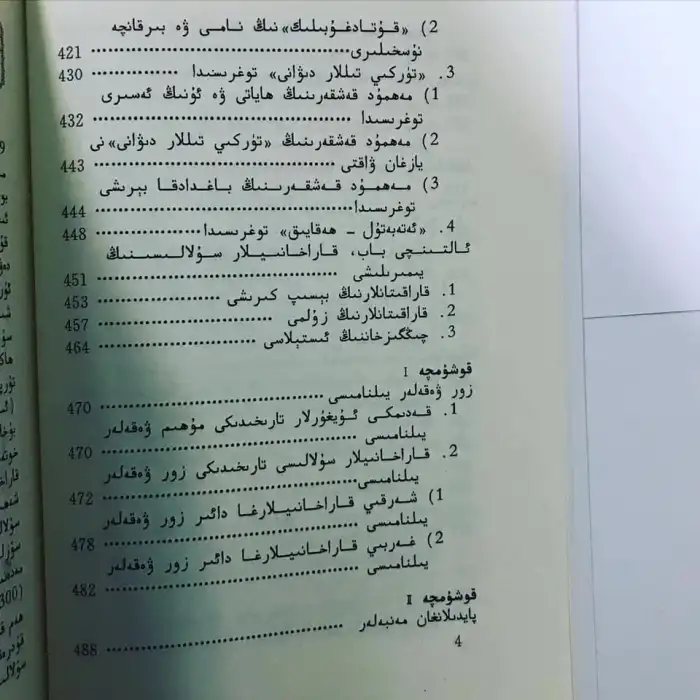 2) «قۇتادغۇبىلىك»نىڭ نامى ۋە بىرقانچە
نۇسخىلىرى 421
3. «تۈركىي تىللار دىۋانى» توغرىسىدا 430
1) مەھمۇد قەشقەرىنىڭ ھاياتى ۋە ئۇنىڭ ئەسىرى
توغرىسىدا 432
2) مەھمۇد قەشقەرىنىڭ «تۈركىي تىللار دىۋانى»نى
يازغان ۋاقتى 443
3) مەھمۇد قەشقەرىنىڭ باغدادقا بېرىشى
توغرىسىدا 444
4. «ئەتەبەتۇل - ھەقايىق» توغرىسىدا 448
ئالتىنچى باب، قاراخانىيلار سۇلالىسىنىڭ
يىمىرىلىشى 451
1. قاراقىتانلارنىڭ بېسىپ كىرىشى 453
2. قاراقىتانلارنىڭ زۇلمى 457
3. چىڭگىزخاننىڭ ئىستېلاسى 464
قوشۇمچە I
زور ۋەقەلەر يىلنامىسى 470
1. قەدىمكى ئۇيغۇرلار تارىخىدىكى مۇھىم ۋەقەلەر
يىلنامىسى 470
2. قاراخانىيلار سۇلالىسى تارىخىدىكى زور ۋەقەلەر
يىلنامىسى 472
1) شەرقىي قاراخانىيلارغا دائىر زور ۋەقەلەر
يىلنامىسى 478
2) غەربىي قاراخانىيلارغا دائىر زور ۋەقەلەر
يىلنامىسى 482
قوشۇمچە I
پايدىلانغان مەنبەلەر 488
4